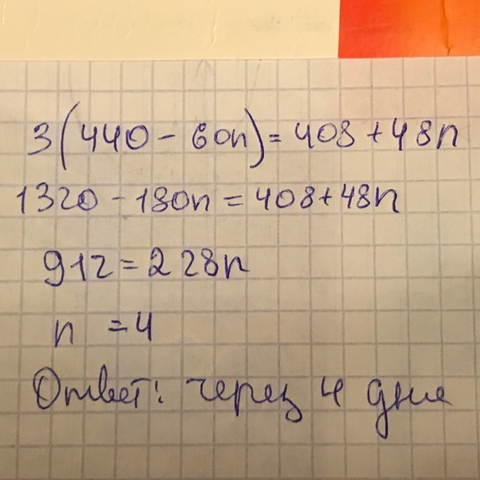 3(440 - 60n) = 408 + 48n
1320 - 180n = 408 + 48n
912 = 228n
n = 4
Ответ: через 4 дне